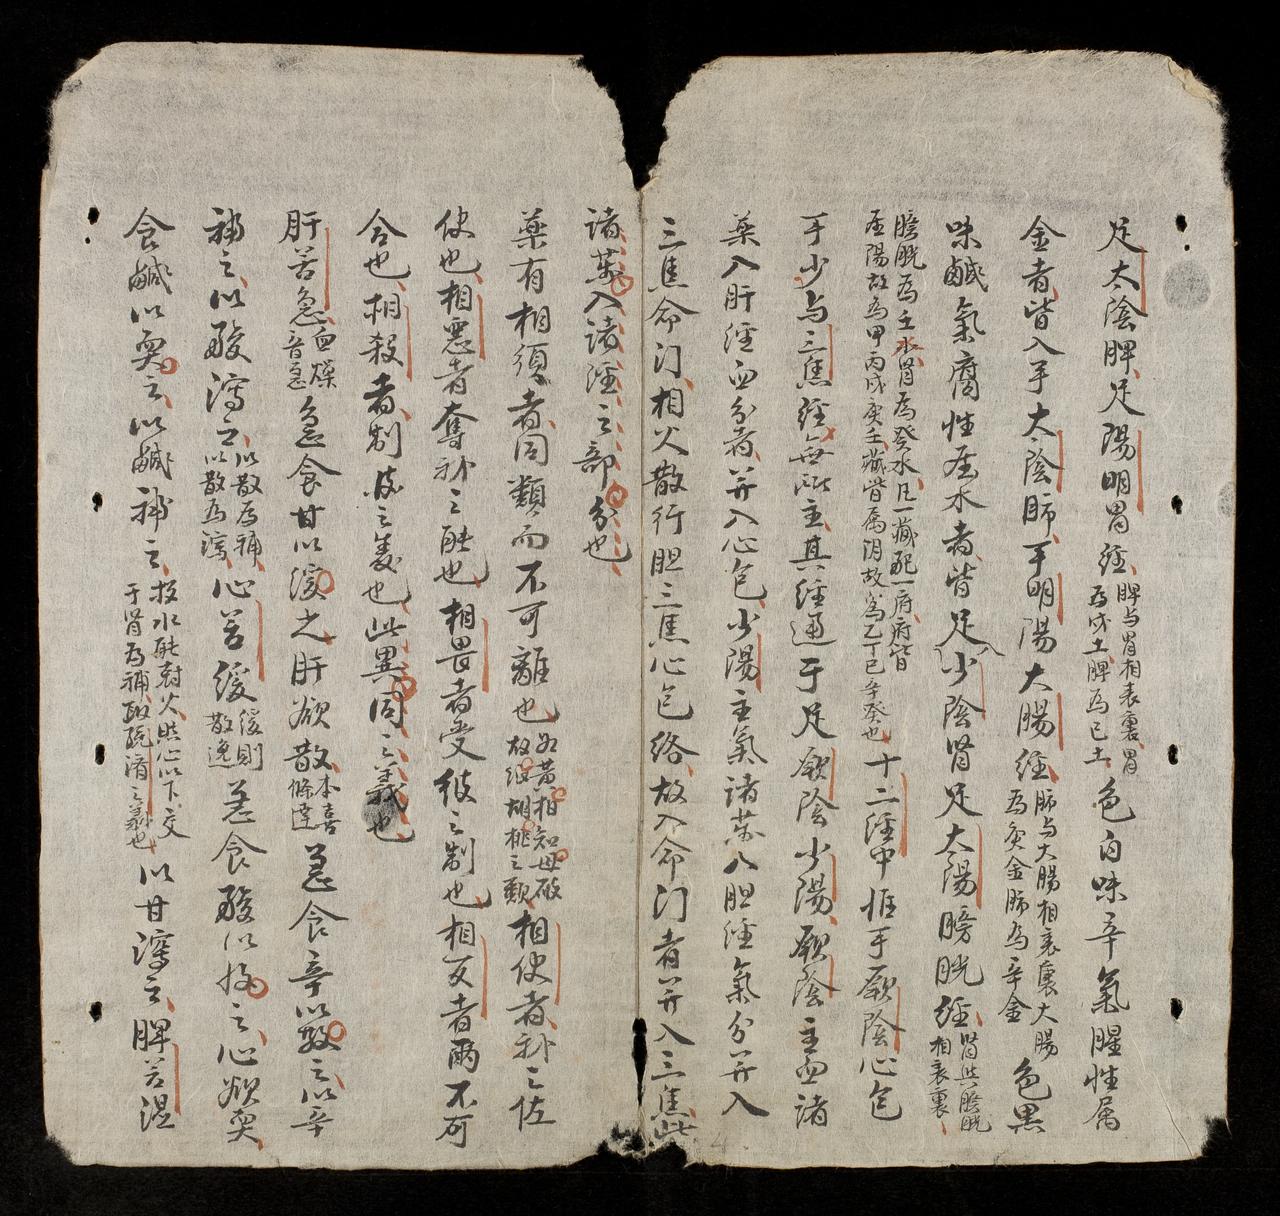 足太陰脾足陽明胃經脾与胃相表裏胃為戊土脾為己土色白味辛氣腥性属
金者皆入手太陰肺手明陽大腸經肺与大腸相表裏大腸為庚金肺為辛金色黑
味鹹氣腐性屬水者皆足少陰腎足太陽膀胱經腎與膀胱相表裏
膀胱為壬水腎為癸水凡一藏配一府府皆屬陽故為甲丙戊庚壬藏皆属阴故為乙丁己辛癸也十二經中惟手厥陰心包
手少与三焦經無所主其經通于足厥陰少陽厥陰主血諸
藥入肝經血分者并入心包少陽主氣諸药入胆經氣分并入
三焦命门相火散行胆三焦心包络故入命门者并入三焦此
諸药入諸經之部分也
藥有相須者同類而不可離也如黄柏知母破故紙胡桃之類相使者我之佐
使也相惡者奪我之能也相畏者受彼之制也相反者两不可
合也相殺者制彼之毒也此異同之義也
肝苦急血燥音急急食甘以緩之肝欲散木喜條達急食辛以散之以辛
補之以酸瀉之以散為補以散為瀉心苦緩緩則散逸急食酸以收之心欲耎
食鹹以耎之以鹹補之投水能尅火然心以下交于腎為補取既濟之義也以甘瀉之脾苦濕